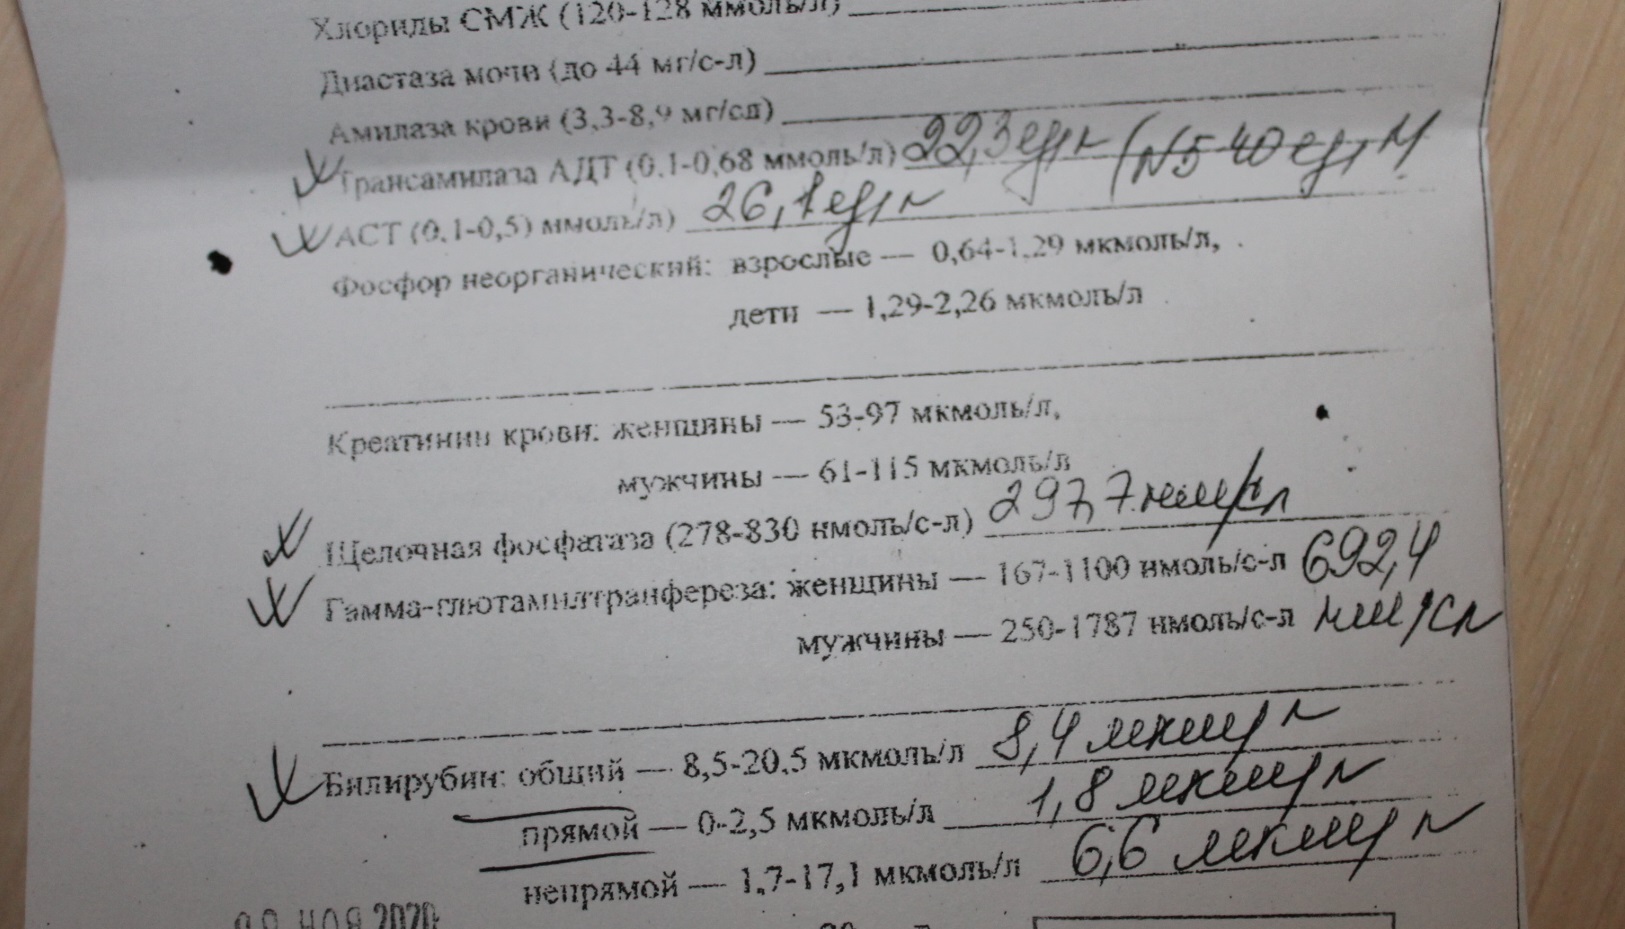 Хлориды СМЖ (120-128 ммоль/л)
Диастаза мочи (до 44 мг/с-л)
Амилаза крови (3,3-8,9 мг/сл)
Трансамилаза АДТ (0,1-0,68 ммоль/л) 22,3 ед/л (N 5-40 ед/л)
АСТ (0,1-0,5) ммоль/л) 26,1 ед/л
Фосфор неорганический: взрослые — 0,64-1,29 мкмоль/л,
дети — 1,29-2,26 мкмоль/л
Креатинин крови: женщины — 53-97 мкмоль/л,
мужчины — 61-115 мкмоль/л
Щелочная фосфатаза (278-830 нмоль/с-л) 297,7 нм/сл
Гамма-глютамилтранфереза: женщины — 167-1100 нмоль/с-л 692,4
мужчины — 250-1787 нмоль/с-л нм/сл
Билирубин: общий — 8,5-20,5 мкмоль/л 8,4 мкм/л
прямой — 0-2,5 мкмоль/л 1,8 мкм/л
непрямой — 1,7-17,1 мкмоль/л 6,6 мкм/л
НОЯ 2020